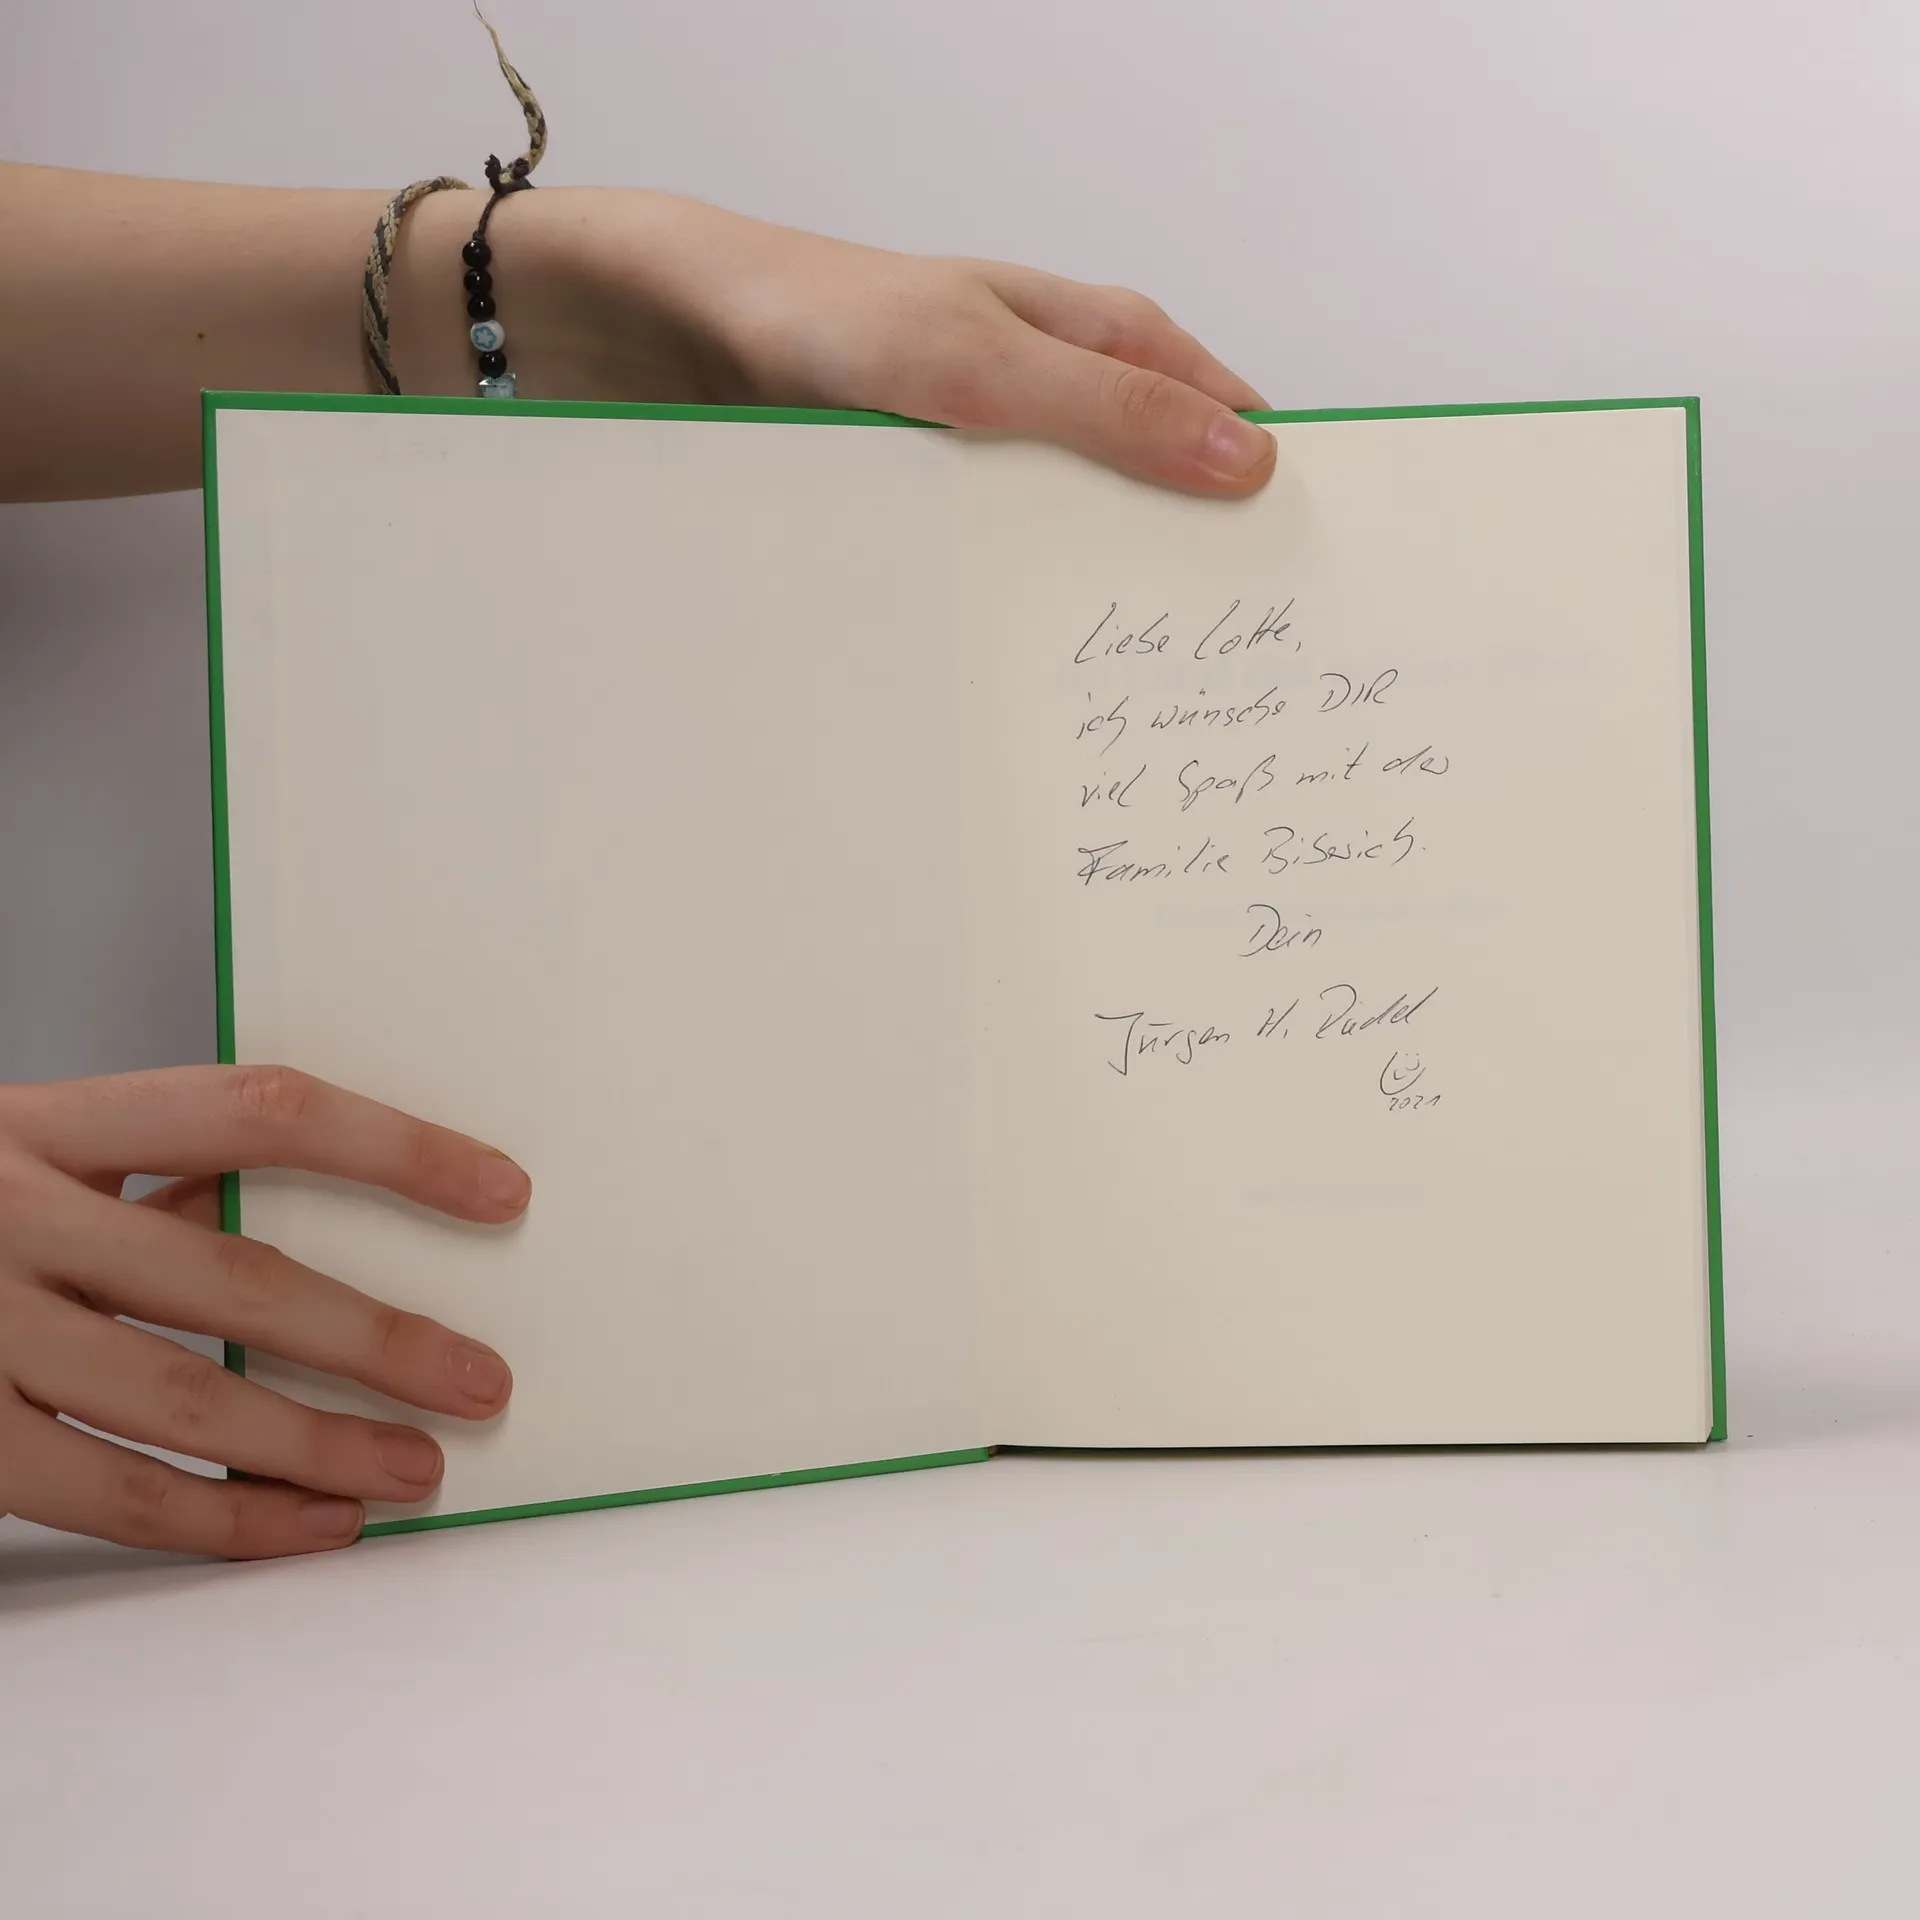 Liebe Lotte,
ich wünsche DIR
viel Spaß mit der
Familie Biberich.
Dein
Jürgen H. Riedel
2021